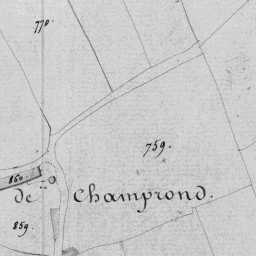 770.
759.
860.
de Champrond.
859.